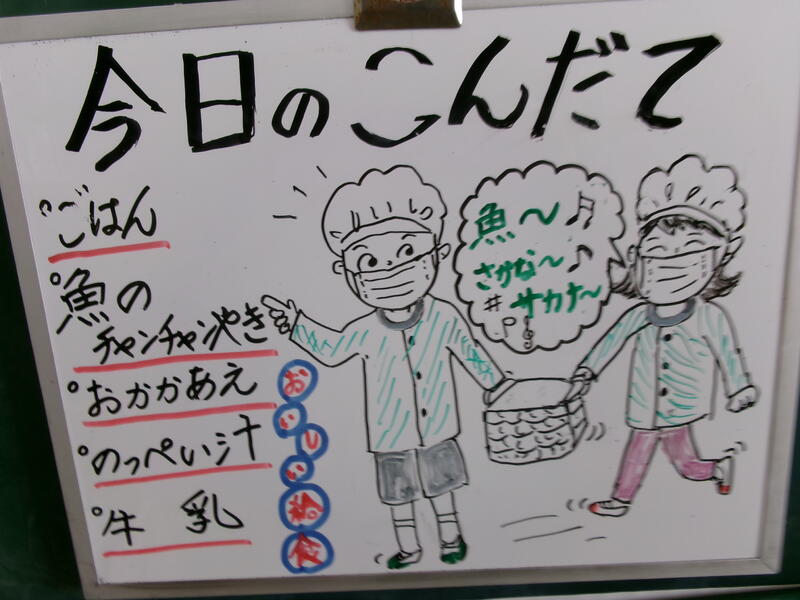 今日のこんだて
ごはん
魚の
チャンチャンやき
おかかあえ
のっぺい汁
牛乳
おいしい給食
魚〜♫
さかな〜♪
#サカナ〜